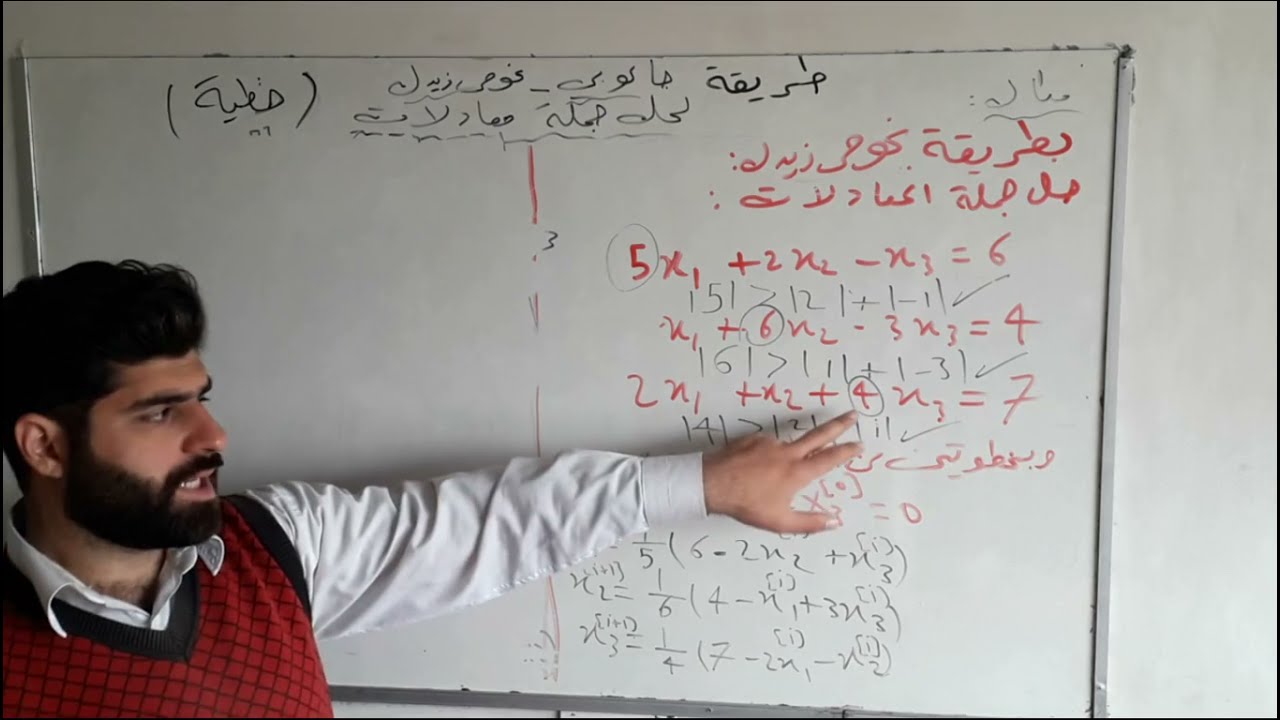 طريقة جاكوبي - غوص زيدل
لحل جملة معادلات (خطية)
مثال:
بطريقة غوص زيدل:
حل جملة المعادلات:
5x₁ + 2x₂ - x₃ = 6
|5| > |2| + |-1| ✓
x₁ + 6x₂ - 3x₃ = 4
|6| > |1| + |-3| ✓
2x₁ + x₂ + 4x₃ = 7
|4| > |2| |1| ✓
وبخطوتين
x₃^[0] = 0
= 1/5 (6 - 2x₂^[i] + x₃^[i])
x₂^[i+1] = 1/6 (4 - x₁^[i] + 3x₃^[i])
x₃^[i+1] = 1/4 (7 - 2x₁^[i] - x₂^[i])
3